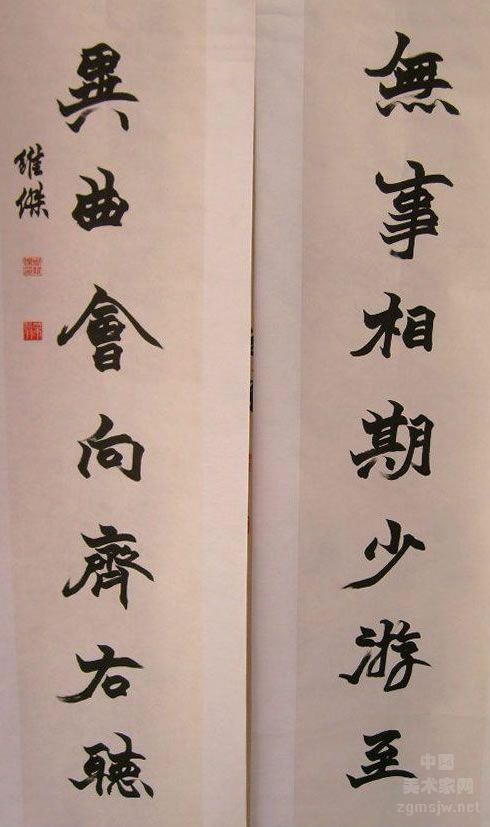 無事相期少游至
異曲會向齊右聽
維傑
中国
美术家网
zgmsjw.net